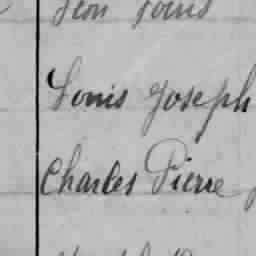 Léon Louis
Louis Joseph
Charles Pierre